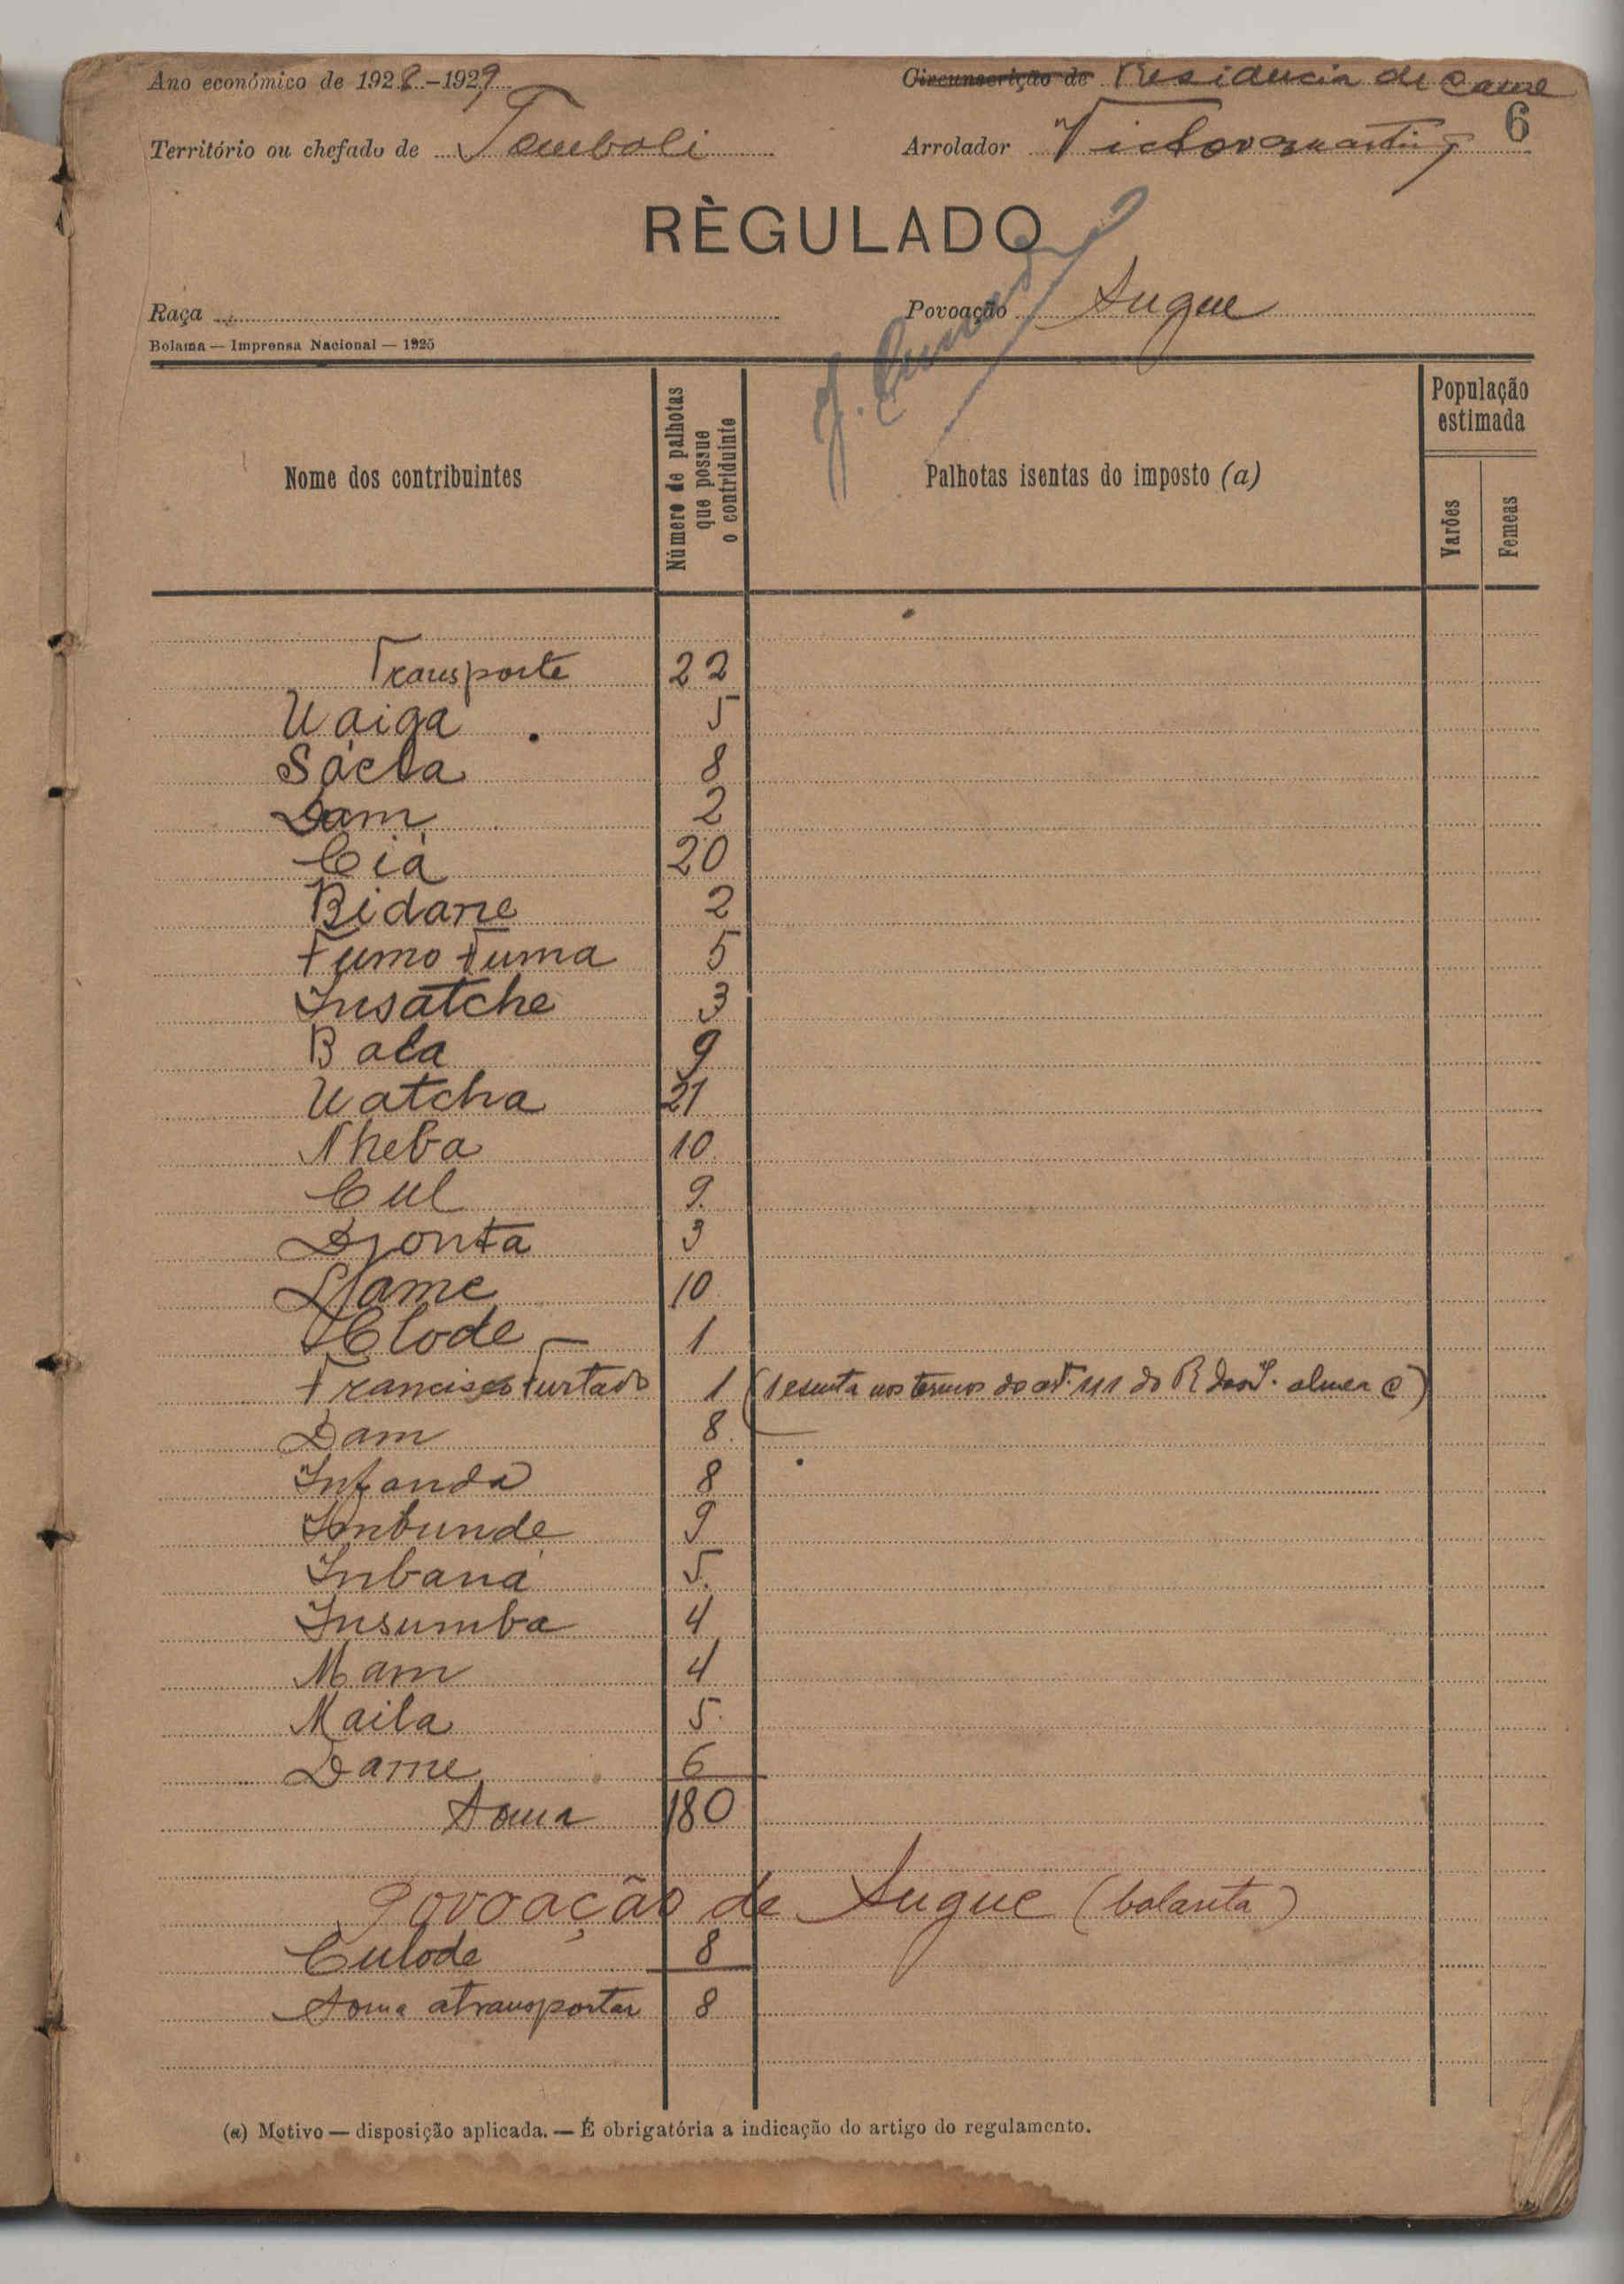 Ano económico de 1928-1929
Circunscrição de Residencia de
6
Território ou chefado de Tomboli
Arrolador Victor Martins
RÈGULADO
Raça
Povoação Sugue
Bolama — Imprensa Nacional — 1925
Nome dos contribuintes
Número de palhotas que possue o contriduinte
Palhotas isentas do imposto (a)
População estimada
Varões
Femeas
Transporte 22
Uaiga 5
Sácba 8
Dam 2
Ciá 20
Bidane 2
Fumo Fuma 5
Insatche 3
Bala 9
Uatcha 21
Nheba 10
Cul 9
Djonta 3
Djame 10
Clode 1
Francisco Furtado 1 (Isenta nos termos do art. 111 do R alinea c)
Dam 8
Infanda 8
Imbunde 9
Inbaná 5
Insumba 4
Mam 4
Maila 5
Dame 6
Soma 180
Povoação de Sugue (balanta)
Culode 8
Soma a transportar 8
(a) Motivo — disposição aplicada. — É obrigatória a indicação do artigo do regulamento.